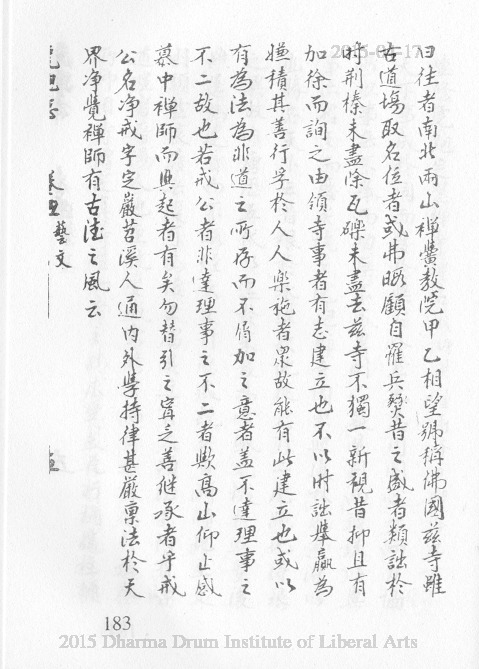 2015-04-17
曰往者南北兩山禪黌教院甲乙相望號稱佛國茲寺雖
古道場取名位者或弗暇顧自罹兵燹昔之盛者類詘於
時荆榛未盡除瓦礫未盡去茲寺不獨一新視昔抑且有
加徐而詢之由領寺事者有志建立也不以時詘舉贏為
嫌積其善行孚於人人樂施者眾故能有此建立也或以
有為法為非道之所存而不屑加之意者蓋不達理事之
不二故也若戒公者非達理事之不二者歟高山仰止感
慕中禪師而興起者有矣勿替引之寧乏善繼承者乎戒
公名淨戒字定巖苕溪人通內外學持律甚嚴稟法於天
界淨覺禪師有古德之風云
藝文
183
2015 Dharma Drum Institute of Liberal Arts